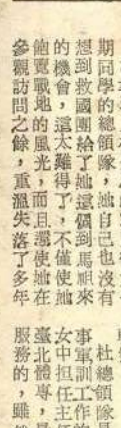 期同學的總領隊，她自己也沒有
想到救國團給了她這個到馬祖來
的機會，這太難得了，不僅使她
飽覽戰地的風光，而且還使她在
參觀訪問之餘，重溫失落了多年
杜總領隊是
事軍訓工作的
女中担任主任
臺北體專，
服務的，雖